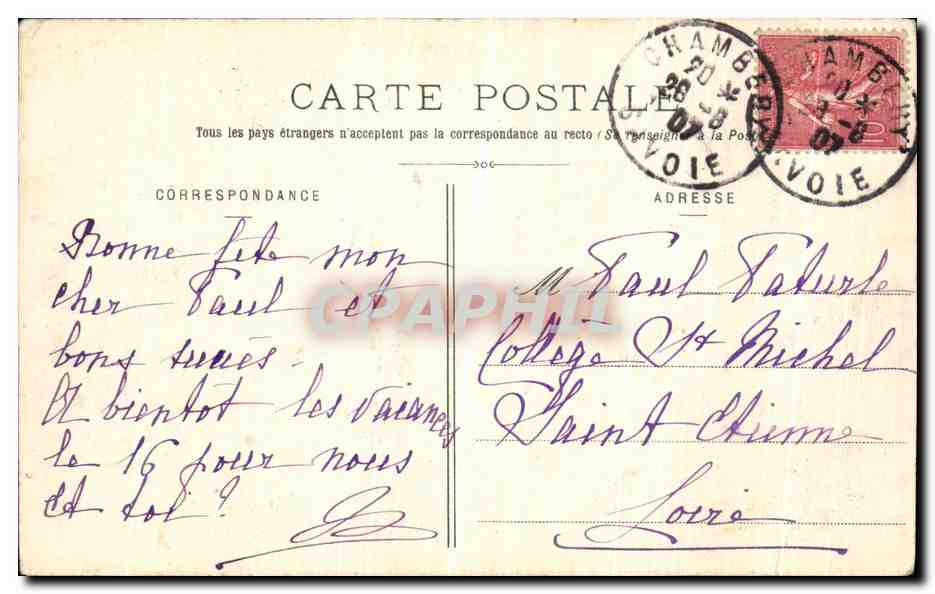 CARTE POSTALE
Tous les pays étrangers n'acceptent pas la correspondance au recto (Se renseigner à la Poste
CORRESPONDANCE
ADRESSE
CHAMBERY
20 *
28 -6
07
SAVOIE
CHAMBERY
20 *
-6
07
SAVOIE
10
Bonne fete mon
cher Paul et
bons succès -
A bientôt les vacances
le 16 pour nous
et toi ?
M Paul Paturle
Collège St Michel
Saint Etienne
Loire
GRAPHIL